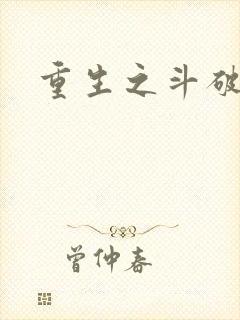 重生之斗破
曾仲春